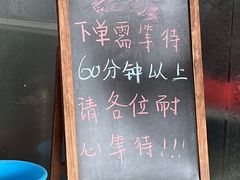 下单需等待
60分钟以上
请各位耐
心等待!!!